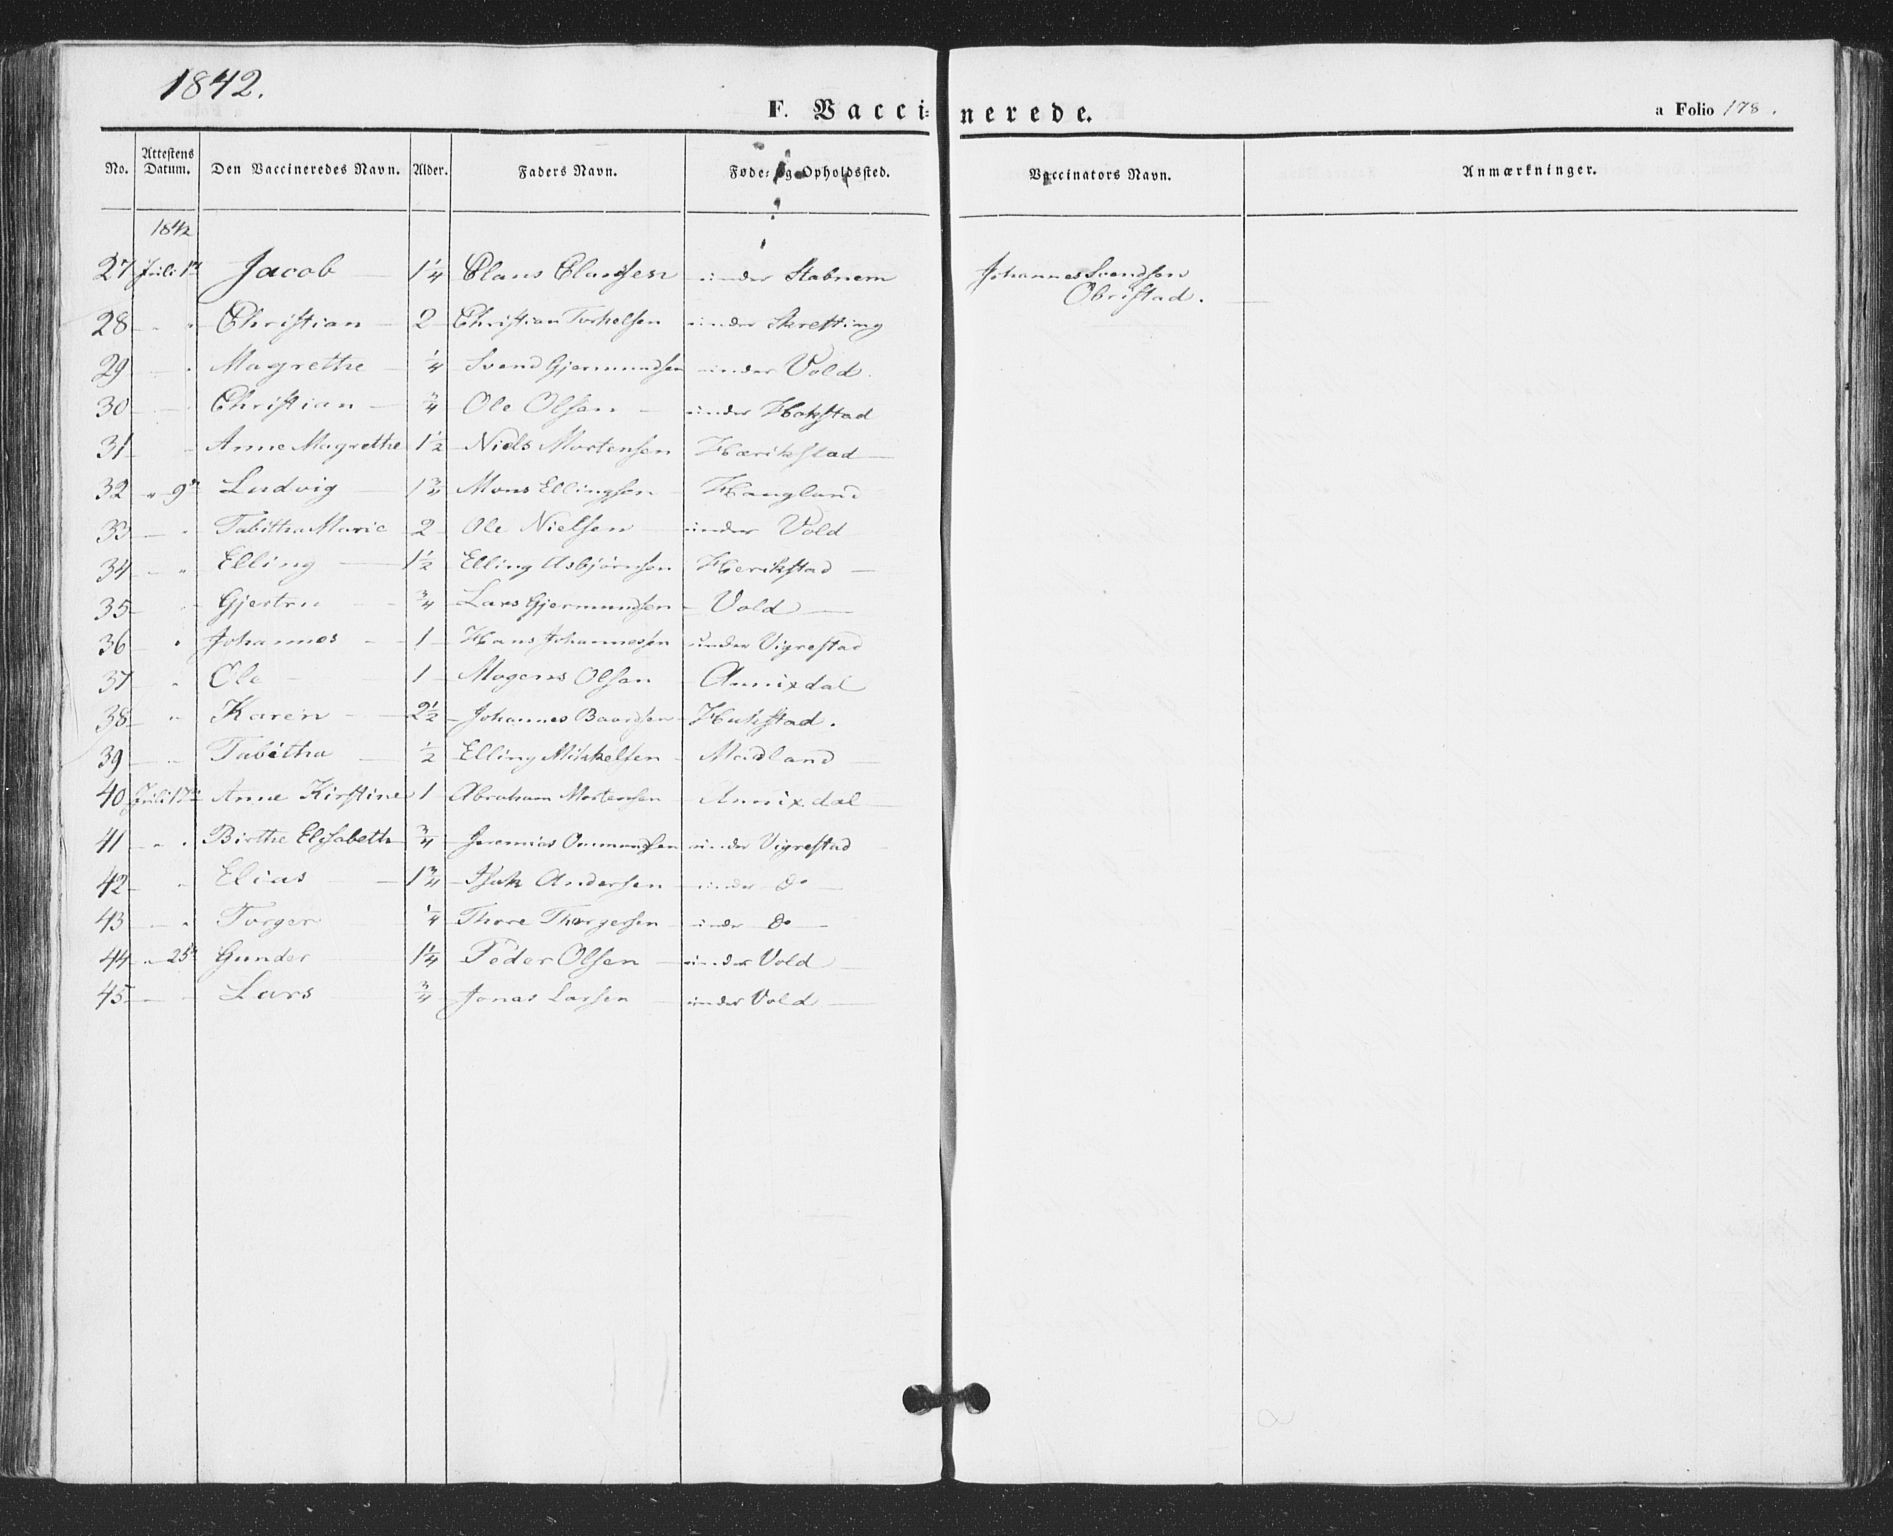 1842.
F. Vaccinerede.
a Folio 178.
No. Attestens Datum. Den Vaccineredes Navn. Alder. Faders Navn. Føde- og Opholdssted. Vaccinators Navn. Anmærkninger.
1842
27 Juli 1 Jacob 1 1/4 Claus Clausen under Stabnem Johannes Svendsen
Obristad.
28 " " Christian 2 Christian Torkelsen under Skretting
29 " Magrethe 1/4 Svend Gjermundsen under Vold.
30 Christian 3/4 Ole Olsen under Hokstad
31 Anne Magrethe 1 1/2 Niels Mortensen Hærikstad
32 " 9 Ludvig 1 3/4 Mons Ellingsen Haugland
33 " Tabitha Marie 2 Ole Nielsen under Vold
34 " Elling 1 1/2 Elling Asbjørnsen Herikstad
35 Gjertru 3/4 Lars Gjermundsen Vold
36 " Johannes 1 Hans Johannessen under Vigrestad
37 " Ole 1 Mogens Olsen Annixdal
38 " Karen 2 1/2 Johannes Baardsen Hukstad.
39 Tabitha 1/2 Elling Mikkelsen Madland
40 Juli 17 Anne Kirstine 1 Abraham Mortensen Annixdal
41 " " Birthe Elisabeth 3/4 Jeremias Ommundsen under Vigrestad
42 " Elias 1 3/4 Isak Andersen under do
43 " Torger 1/4 Thore Thorgersen under do
44 " 25 Gunder 1 1/4 Peder Olsen under Vold
45 Lars 3/4 Jonas Larsen under Vold